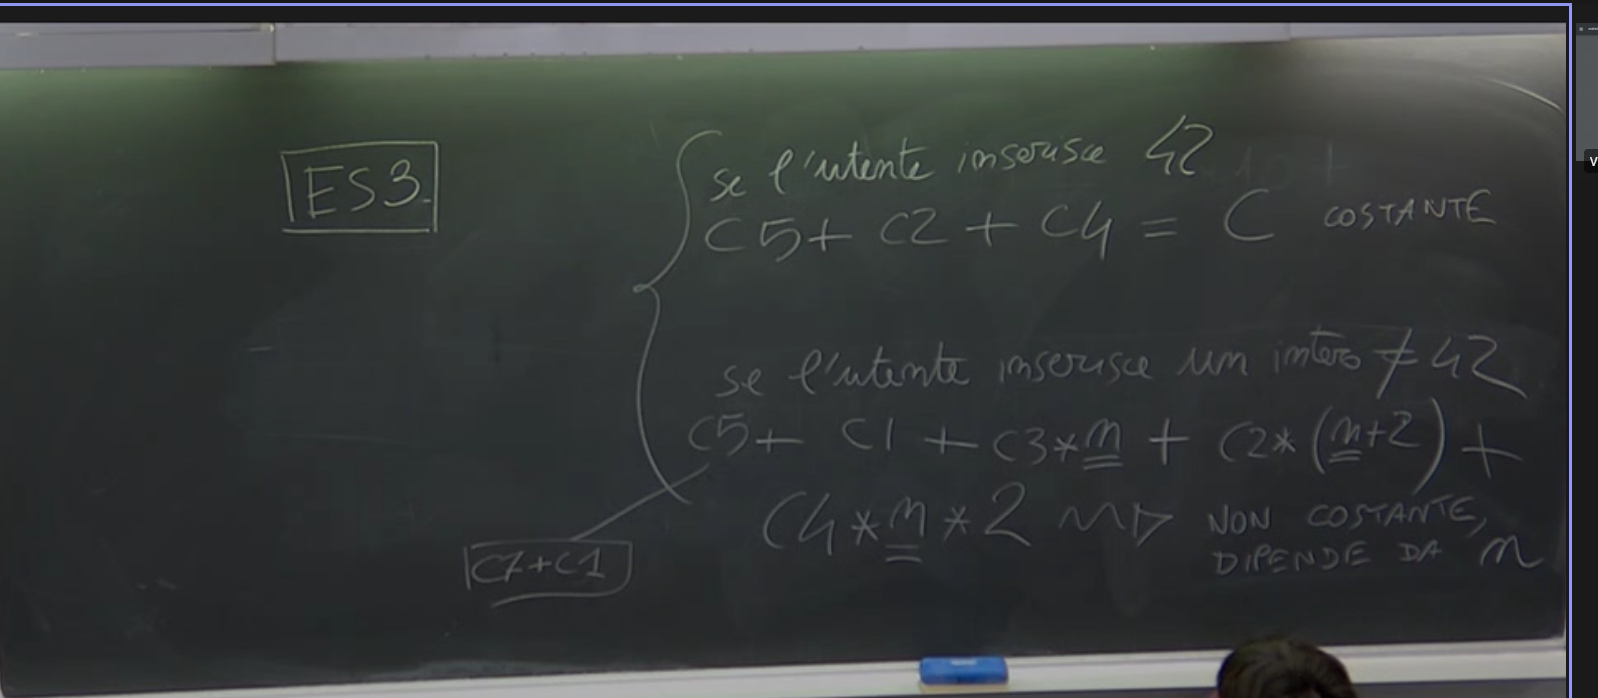 ES3.
se l'utente inserisce 42
C5+ C2 + C4 = C COSTANTE
se l'utente inserisce un intero ≠ 42
C5+ C1 + C3*n + C2*(n+2) +
C4*n*2 ~> NON COSTANTE,
DIPENDE DA n
C7+C1